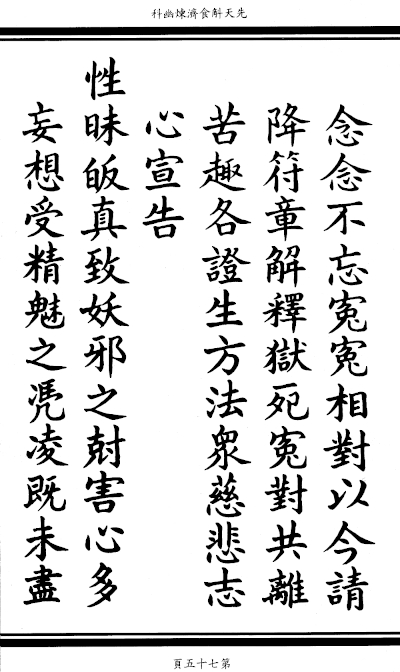 先天斛食濟煉幽科
念念不忘寃寃相對以今請
降符章解釋獄死寃對共離
苦趣各證生方法眾慈悲志
心宣告
性昧皈真致妖邪之尅害心多
妄想受精魅之凴凌既未盡
第七十五頁